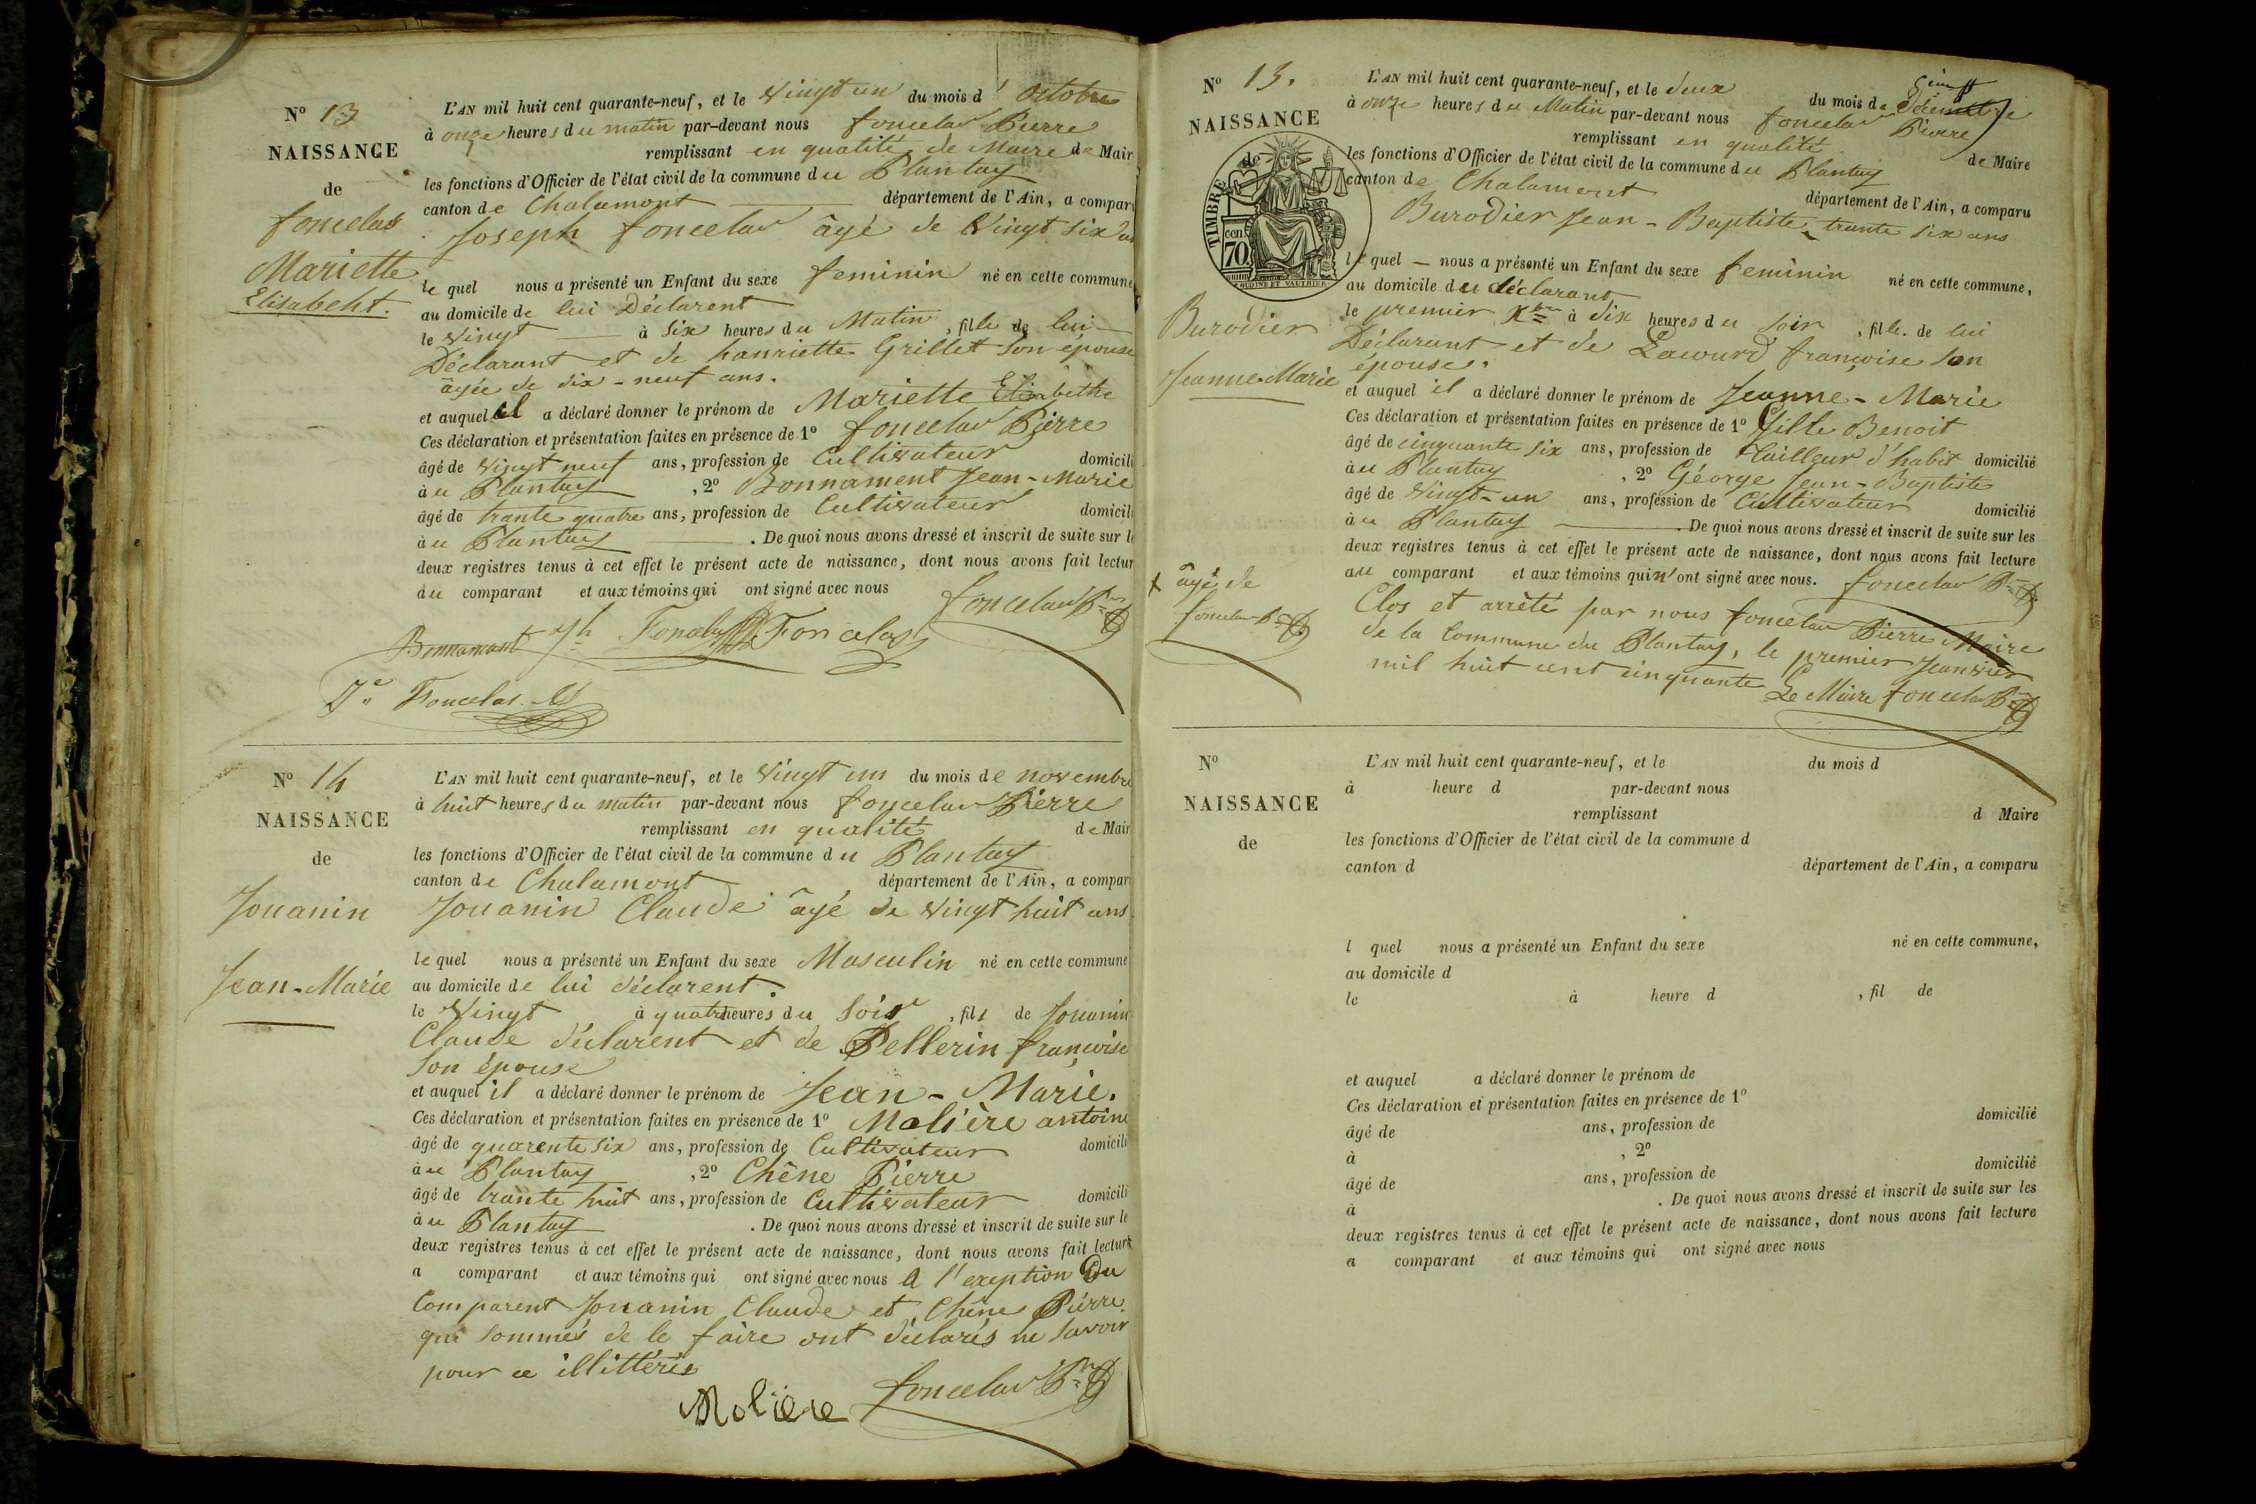 N° 13
NAISSANCE
de
foncelas
Mariette
Elisabeht.
L'AN mil huit cent quarante-neuf, et le vingt un du mois d' octobre
à onze heures du matin par-devant nous foncelas Pierre
remplissant en qualité de Maire de Mair
les fonctions d'Officier de l'état civil de la commune du Plantay
canton de Chalamont département de l'Ain, a compar
Joseph foncelas âgé de vingt six an
le quel nous a présenté un Enfant du sexe feminin né en cette commune
au domicile de lui Déclarent
le vingt à six heures du Matin, fille de lui
Déclarant et de hanriette Grillet son épouse
âgée de dix-neuf ans.
et auquel il a déclaré donner le prénom de Mariette Elisabethe
Ces déclaration et présentation faites en présence de 1° foncelas Pierre
âgé de vingt neuf ans, profession de Cultivateur domicili
au Plantay, 2° Bonnament Jean-Marie
âgé de trante quatre ans, profession de Cultivateur domicili
au Plantay. De quoi nous avons dressé et inscrit de suite sur le
deux registres tenus à cet effet le présent acte de naissance, dont nous avons fait lectur
du comparant et aux témoins qui ont signé avec nous
foncelas Pre
Bonnamant Foncelas
Foncelas
N° 14
NAISSANCE
de
Jouanin
Jean-Marie
L'AN mil huit cent quarante-neuf, et le vingt un du mois de novembre
à huit heures du matin par-devant nous foncelas Pierre
remplissant en qualité de Mair
les fonctions d'Officier de l'état civil de la commune du Plantay
canton de Chalamont département de l'Ain, a compar
Jouanin Claude âgé de vingt huit ans
le quel nous a présenté un Enfant du sexe Masculin né en cette commune
au domicile de lui déclarent.
le vingt à quatre heures du soir, fils de Jouanin
Claude déclarent et de Pellerin françoise
son épouse
et auquel il a déclaré donner le prénom de Jean-Marie.
Ces déclaration et présentation faites en présence de 1° Molière antoine
âgé de quarente six ans, profession de Cultivateur domicili
au Plantay, 2° Chêne Pierre
âgé de trante huit ans, profession de Cultivateur domicili
au Plantay. De quoi nous avons dressé et inscrit de suite sur le
deux registres tenus à cet effet le présent acte de naissance, dont nous avons fait lecture
a comparant et aux témoins qui ont signé avec nous a l'exeption Du
Comparent Jouanin Claude et Chêne Pierre.
qui sommés de le faire ont déclarés ne savoir
pour ce illittérés
Molière foncelas Pre
N° 15.
NAISSANCE
de
TIMBRE
cen
70.
Burodier
Jeanne-Marie
L'AN mil huit cent quarante-neuf, et le deux du mois de Décembre
à onze heures du Matin par-devant nous foncelas Pierre
remplissant en qualité de Maire
les fonctions d'Officier de l'état civil de la commune du Plantay
canton de Chalamont département de l'Ain, a comparu
Burodier Jean-Baptiste trante six ans
le quel nous a présenté un Enfant du sexe feminin né en cette commune,
au domicile du déclarant
le premier Xbre à dix heures du soir, fille. de lui
Déclarant et de Lacourd françoise son
épouse.
et auquel il a déclaré donner le prénom de Jeanne-Marie
Ces déclaration et présentation faites en présence de 1° Gille Benoit
âgé de cinquante six ans, profession de tailleur d'habit domicilié
au Plantay, 2° Géorge Jean-Baptiste
âgé de vingt-un ans, profession de Cultivateur domicilié
au Plantay. De quoi nous avons dressé et inscrit de suite sur les
deux registres tenus à cet effet le présent acte de naissance, dont nous avons fait lecture
au comparant et aux témoins qui n'ont signé avec nous. foncelas Pre
x âgé de
foncelas Pre
Clos et arrêté par nous foncelas Pierre Maire
de la Commune du Plantay, le premier Jeanvier
mil huit cent cinquante Le Maire foncelas Pre
N°
NAISSANCE
de
L'AN mil huit cent quarante-neuf, et le du mois d
à heure d par-devant nous
remplissant d Maire
les fonctions d'Officier de l'état civil de la commune d
canton d département de l'Ain, a comparu
l quel nous a présenté un Enfant du sexe né en cette commune,
au domicile d
le à heure d, fil de
et auquel a déclaré donner le prénom de
Ces déclaration et présentation faites en présence de 1°
âgé de ans, profession de domicilié
à, 2°
âgé de ans, profession de domicilié
à. De quoi nous avons dressé et inscrit de suite sur les
deux registres tenus à cet effet le présent acte de naissance, dont nous avons fait lecture
a comparant et aux témoins qui ont signé avec nous